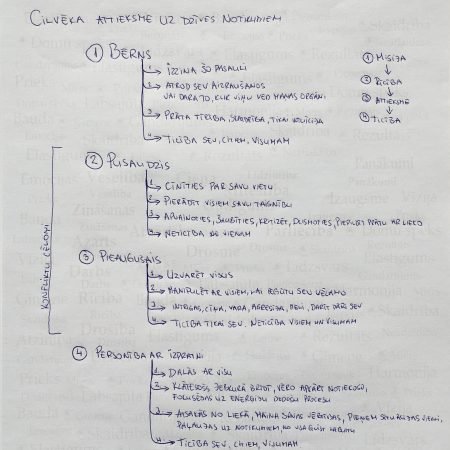 CILVĒKA ATTIEKSME UZ DZĪVES NOTIKUMIEM
① BĒRNS
1 IZZINA ŠO PASAULI
2 ATROD SEV AIZRAUŠANOS
VAI DARA TO, KUR VIŅU VED MAŅAS ORGĀNI
3 PRĀTA TĪRĪBA, SKAIDRĪBA, TIKAI
4 TICĪBA SEV, CITIEM, VISUMAM
① MISIJA
② RĪCĪBA
③ ATTIEKSME
④ TICĪBA
KONFLIKTU CĒLOŅI
② PUSAUDZIS
1 CĪNĪTIES PAR SAVU VIETU
2 PIERĀDĪT VISIEM SAVU TAISNĪBU
3 APVAINOTIES, SKUMT, KRITIZĒT, DUSMOTIES, PIEPILDĪT PRĀTU AR LIEKO
4 NETICĪBA NE VIENAM
③ PIEAUGUŠAIS
1 UZVARĒT VISUS
2 MANIPULĒT AR VISIEM, LAI IEGŪTU SEV VĒLAMO
3 INTRIGAS, CĪŅA, VARA, AGRESIJA, MELI, DARĪT PĀRI SEV
4 TICĪBA TIKAI SEV. NETICĪBA VISIEM UN VISUMAM
④ PERSONĪBA AR IZPRATNI
1 DALĀS AR VISU
2 KLĀTESOŠS, JEBKURĀ BRĪDĪ, VĒRO APKĀRT NOTIEKOŠO,
FOKUSĒJAS UZ ENERĢIJU DODOŠU PROCESU
3 ATSAKĀS NO LIEKĀ, MAINA SAVAS VĒRTĪBAS, PIEŅEM SITUĀCIJAS VIEGLI,
PAĻAUJAS UZ NOTIKUMIEM, NO VISA GŪST LABUMU
4 TICĪBA SEV, CITIEM, VISUMAM